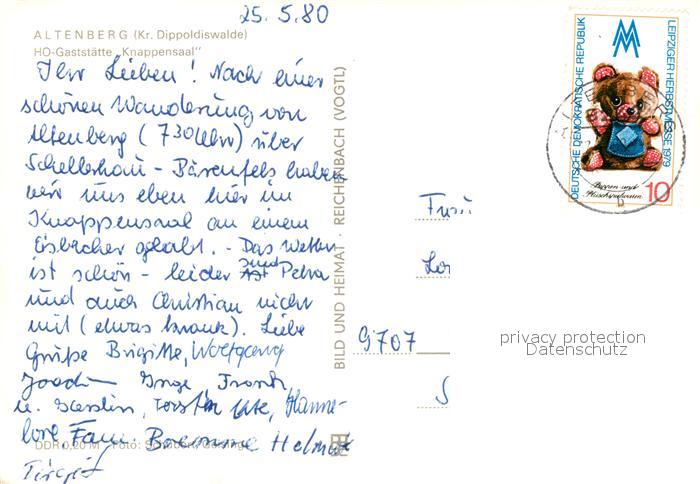 25.5.80
ALTENBERG (Kr. Dippoldiswalde)
HO-Gaststätte „Knappensaal"
Ihr Lieben! Nach einer
schönen Wanderung von
Altenberg (7³⁰ Uhr) über
Schellerhau - Bärenfels haben
wir uns eben hier im
Knappensaal an einem
Eisbecher gelabt. - Das Wetter
ist schön - leider sind Petra
und auch Christian nicht
mit (etwas krank). Liebe
Grüße Brigitte, Wolfgang
Joachim Inge, Frank,
u. Kerstin, Torsten Ute, Hanne-
lore Fam. Helmut
DDR 0,20 M Foto:
BILD UND HEIMAT · REICHENBACH (VOGTL)
DEUTSCHE DEMOKRATISCHE REPUBLIK
LEIPZIGER HERBSTMESSE 1979
Puppen und
Plüschspielwaren
10
9707
privacy protection
Datenschutz